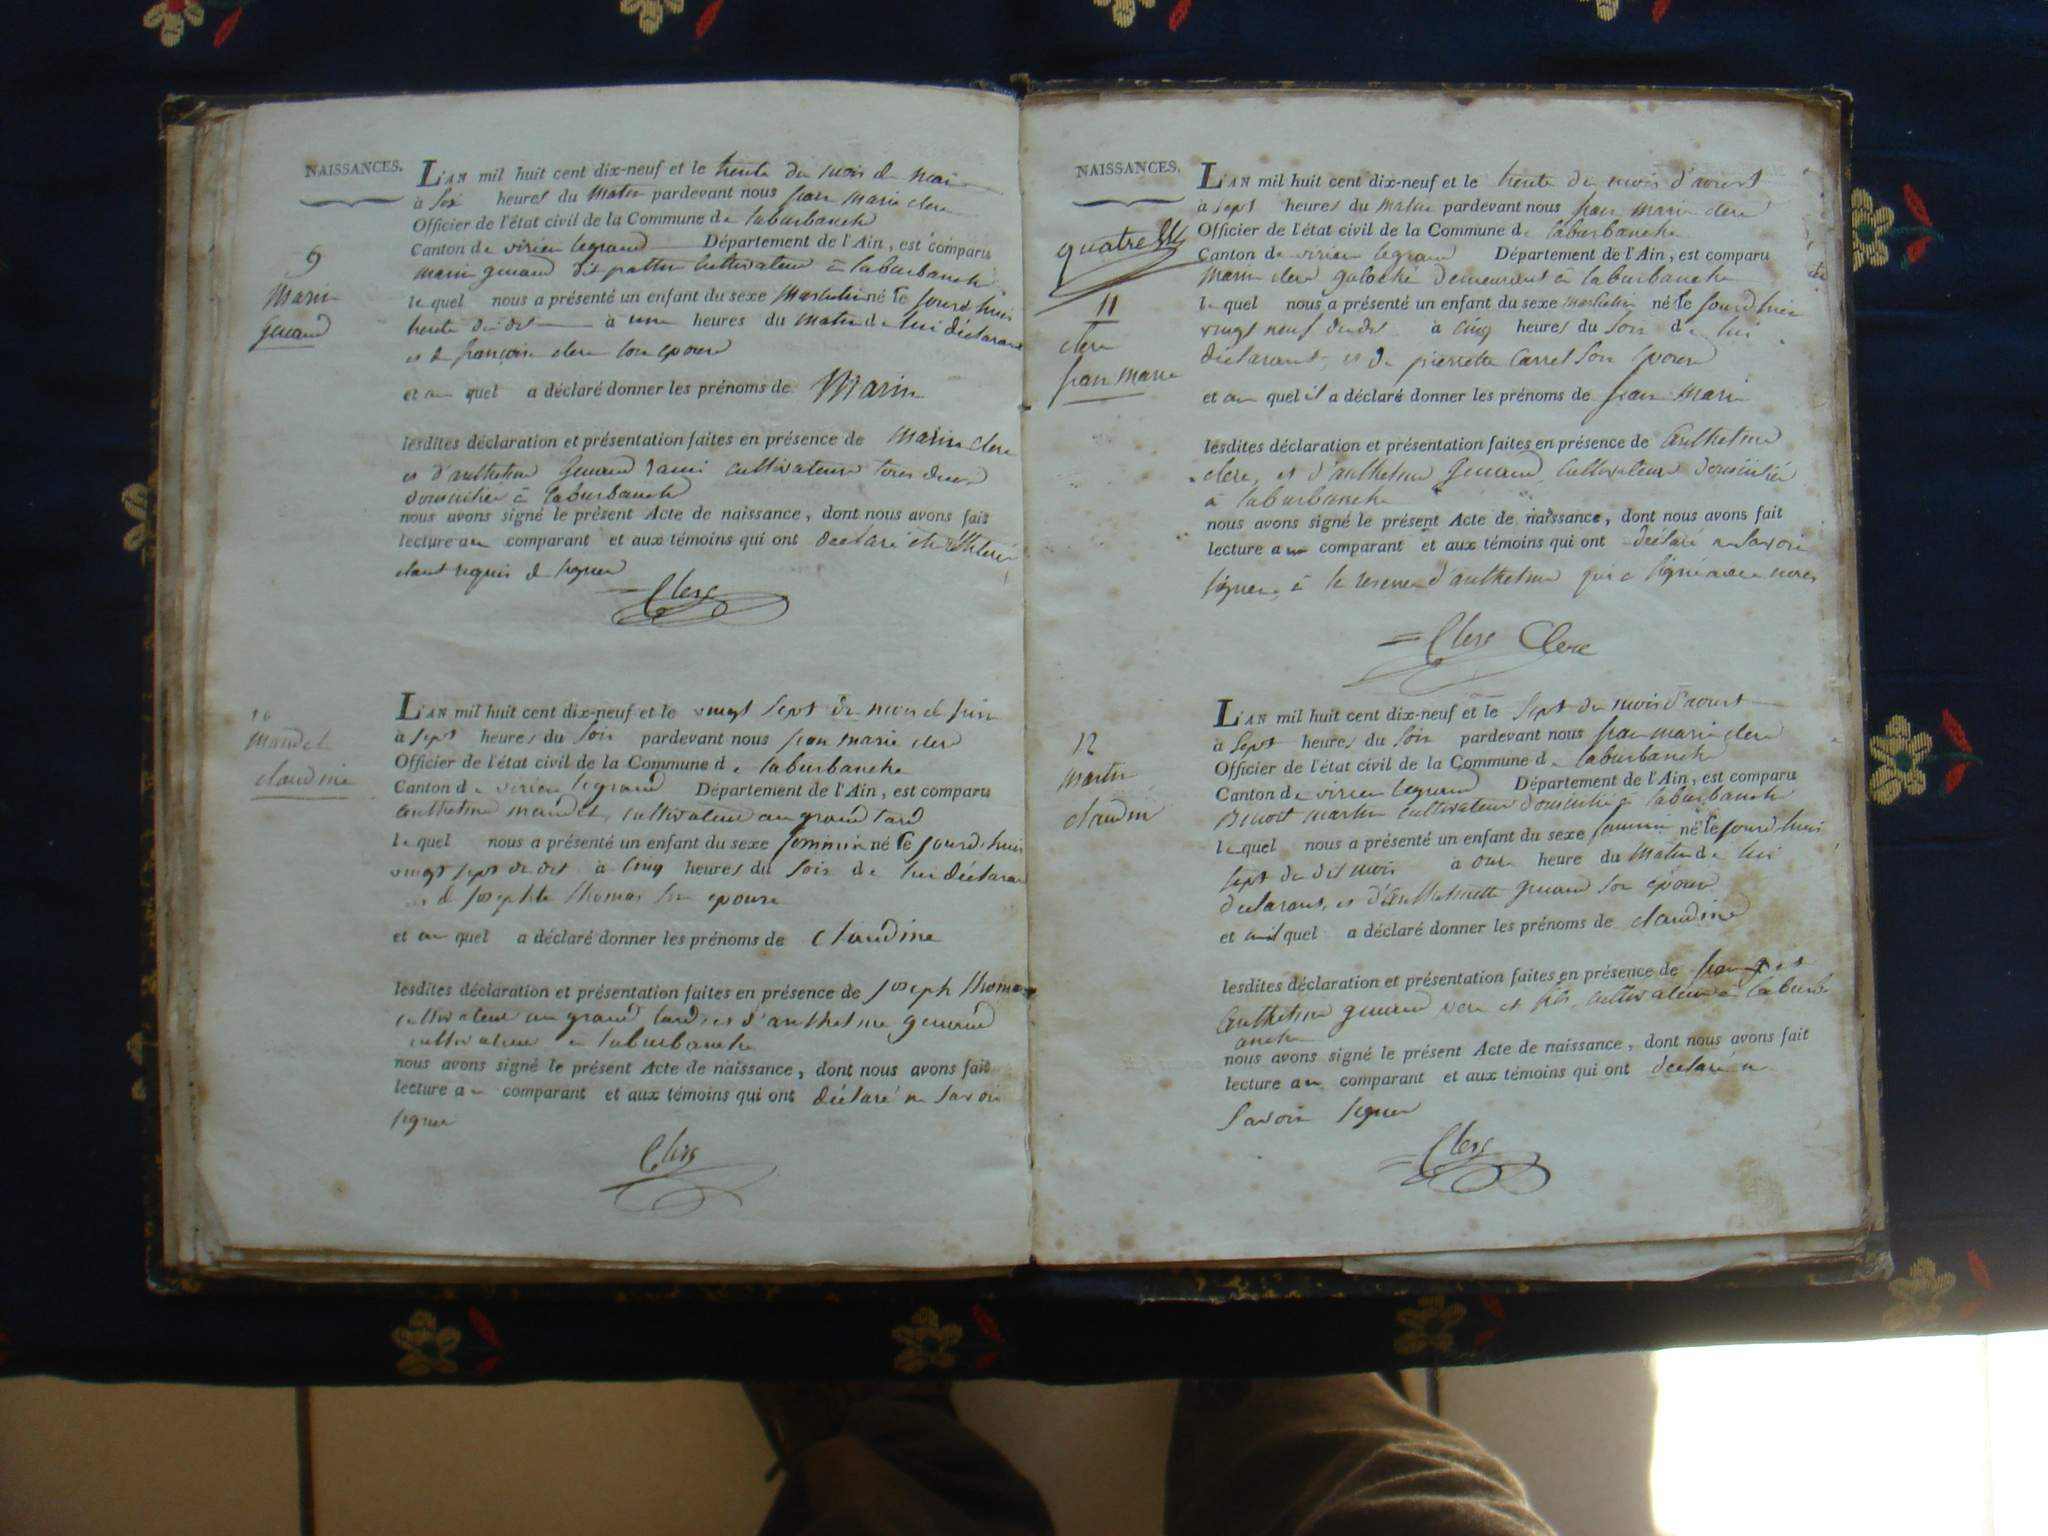 NAISSANCES.
9
Marin
L'AN mil huit cent dix-neuf et le trente du mois de mai
à six heures du matin pardevant nous jean marie clerc
Officier de l'état civil de la Commune de laburbanche
Canton de virieu legrand Département de l'Ain, est comparu
marin cultivateur à laburbanche
lequel nous a présenté un enfant du sexe masculin né le jourd'hui
trente dudit à une heures du matin de lui déclarant
et de françoise clerc son epouse
et au quel a déclaré donner les prénoms de Marin
lesdites déclaration et présentation faites en présence de Marin clerc
et d'anthelme cultivateurs tous deux
domiciliés à laburbanche
nous avons signé le présent Acte de naissance, dont nous avons fait
lecture au comparant et aux témoins qui ont déclaré
étant requis de signer
Clerc
10
claudine
L'AN mil huit cent dix-neuf et le vingt sept du mois de juin
à sept heures du soir pardevant nous jean marie clerc
Officier de l'état civil de la Commune de laburbanche
Canton de virieu legrand Département de l'Ain, est comparu
anthelme cultivateur au grand tard
lequel nous a présenté un enfant du sexe feminin né le jourd'hui
vingt sept dudit à cinq heures du soir de lui déclarant
et de josephte thomas son epouse
et au quel a déclaré donner les prénoms de claudine
lesdites déclaration et présentation faites en présence de joseph thomas
cultivateur au grand tard et d'anthelme
cultivateur à laburbanche
nous avons signé le présent Acte de naissance, dont nous avons fait
lecture au comparant et aux témoins qui ont déclaré ne savoir
signer
Clerc
NAISSANCES.
quatre
11
clerc
jean marie
L'AN mil huit cent dix-neuf et le trente du mois d'
à sept heures du matin pardevant nous jean marie clerc
Officier de l'état civil de la Commune de laburbanche
Canton de virieu legrand Département de l'Ain, est comparu
marin clerc demeurant à laburbanche
lequel nous a présenté un enfant du sexe masculin né le jourd'hier
vingt neuf dudit à cinq heures du soir de lui
déclarant, et de pierrette carrel son epouse
et au quel il a déclaré donner les prénoms de jean marie
lesdites déclaration et présentation faites en présence de anthelme
clerc, et d'anthelme cultivateurs domiciliés
à laburbanche
nous avons signé le présent Acte de naissance, dont nous avons fait
lecture au comparant et aux témoins qui ont déclaré ne savoir
signer, à la reserve d'anthelme qui a signé avec nous
Clerc Clerc
12
martin
claudine
L'AN mil huit cent dix-neuf et le sept du mois d'aoust
à sept heures du soir pardevant nous jean marie clerc
Officier de l'état civil de la Commune de laburbanche
Canton de virieu legrand Département de l'Ain, est comparu
Benoit martin cultivateur domicilié à laburbanche
lequel nous a présenté un enfant du sexe feminin né le jourd'hui
sept du dit mois à onze heure du matin de lui
declarant, et d' son epouse
et quel a déclaré donner les prénoms de claudine
lesdites déclaration et présentation faites en présence de jean et
anthelme pere et fils, cultivateurs à laburb
anche
nous avons signé le présent Acte de naissance, dont nous avons fait
lecture au comparant et aux témoins qui ont declaré ne
savoir signer
Clerc